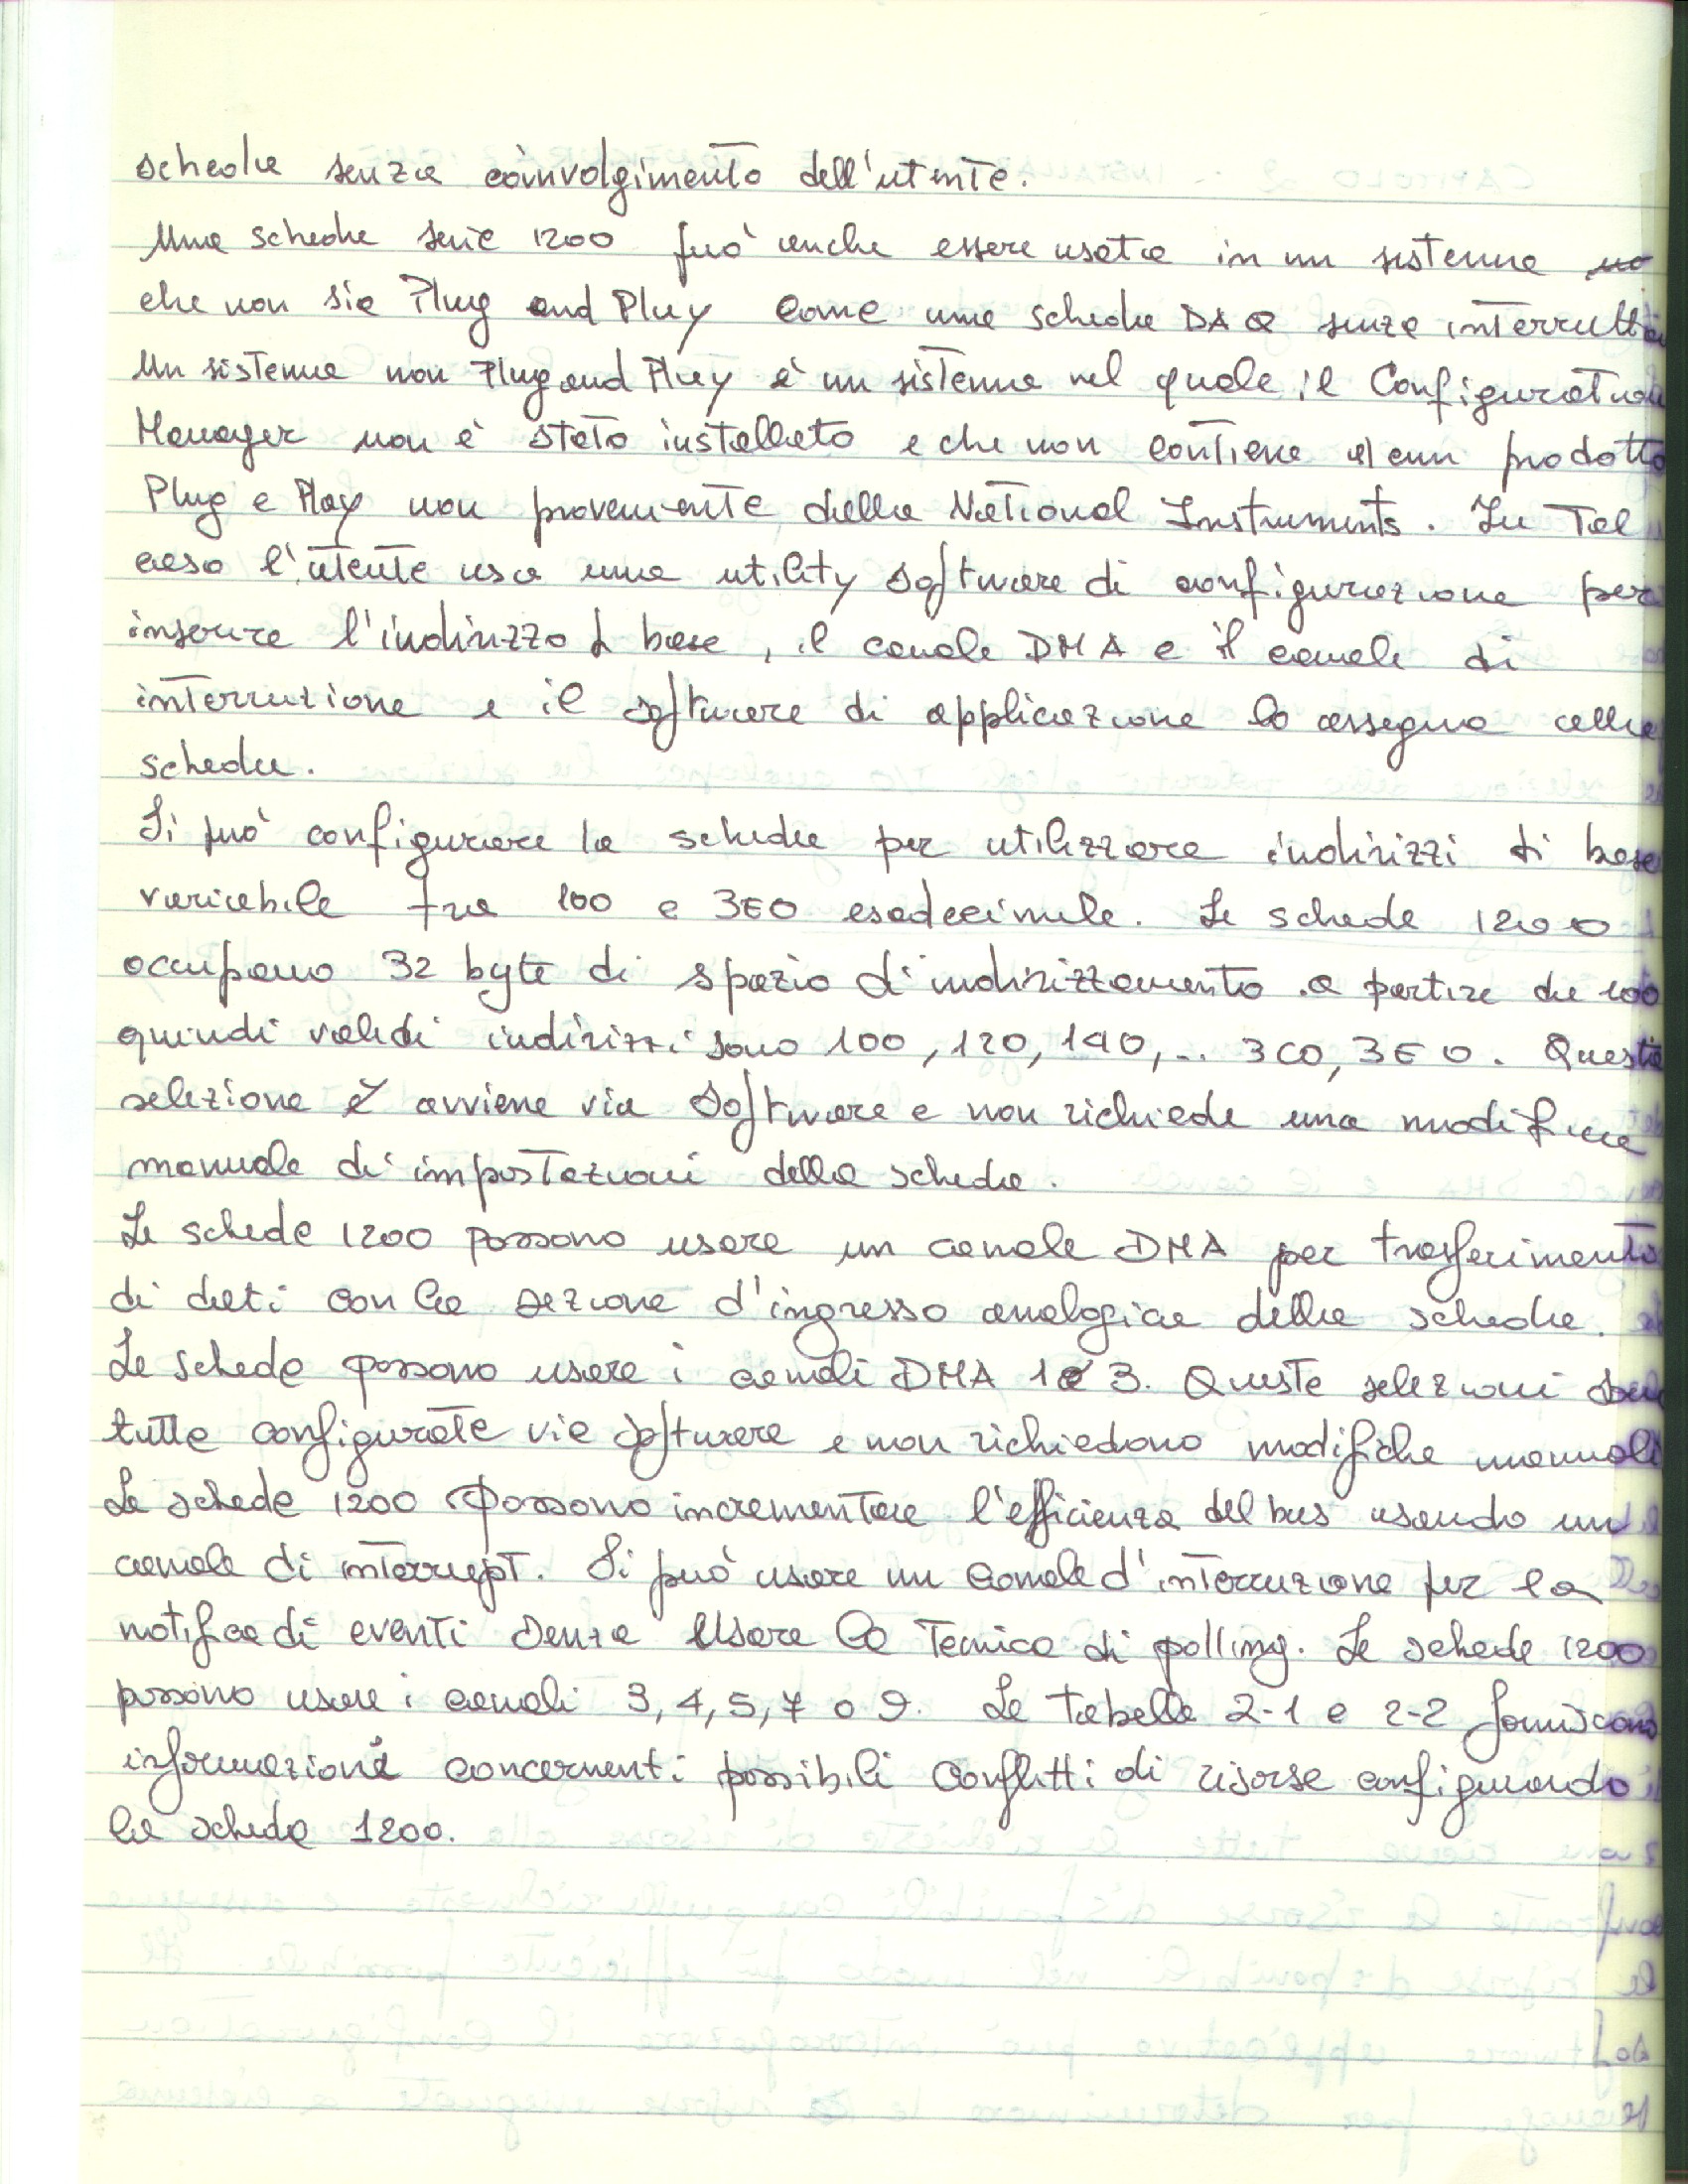 scheda senza coinvolgimento dell'utente.
Una scheda serie 1200 può anche essere usata in un sistema
che non sia Plug and Play come una scheda DAQ senza interruttori
Un sistema non Plug and Play è un sistema nel quale il Configuration
Manager non è stato installato e che non contiene alcun prodotto
Plug e Play non proveniente dalla National Instruments. In tal
caso l'utente usa una utility software di configurazione per
inserire l'indirizzo di base, il canale DMA e il canale di
interruzione e il software di applicazione lo assegna alla
scheda.
Si può configurare la scheda per utilizzare indirizzi di base
variabile tra 100 e 3E0 esadecimale. Le schede 1200
occupano 32 byte di spazio d'indirizzamento a partire da 100
quindi validi indirizzi sono 100, 120, 140, .. 3C0, 3E0. Questa
selezione avviene via software e non richiede una modifica
manuale di impostazioni della scheda.
Le schede 1200 possono usare un canale DMA per trasferimento
di dati con la sezione d'ingresso analogica della scheda.
Le schede possono usare i canali DMA 1 e 3. Queste selezioni sono
tutte configurate via software e non richiedono modifiche manuali
Le schede 1200 possono incrementare l'efficienza del bus usando un
canale di interrupt. Si può usare un canale d'interruzione per la
notifica di eventi senza usare la tecnica di polling. Le schede 1200
possono usare i canali 3, 4, 5, 7 o 9. Le tabelle 2-1 e 2-2 forniscono
informazioni concernenti possibili conflitti di risorse configurando
la scheda 1200.